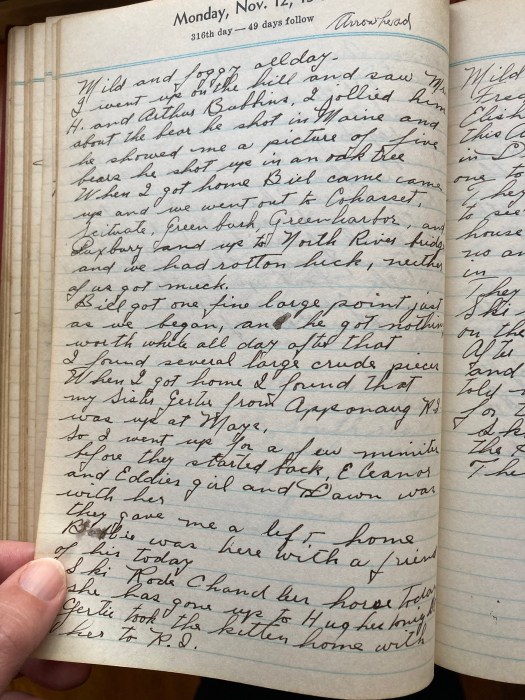 Monday, Nov. 12,
316th day — 49 days follow
Arrowhead
Mild and foggy all day.
I went up on the hill and saw Mr
H. and Arthur Bubbins, I jollied him
about the bear he shot in Maine and
he showed me a picture of five
bears he shot up in an oak tree
When I got home Bill came came
up and we went out to Cohasset,
Scituate, Greenbush Greenharbor, and
Duxbury and up to North River bridge
and we had rotton luck, neither
of us got much.
Bill got one fine large point just
as we began, and he got nothin
worth while all day after that
I found several large crude pieces
When I got home I found that
my Sister Gertie from Apponaug R.I
was up at Mays,
So I went up for a few minites
before they started back, Eleanor
and Eddies girl and Dawn was
with her
they gave me a lift home
was here with a friend
of his today
Ski Rode Chandler horse today
she has gone up to Hughes
Gertie took the kitten home with
her to R.I.
Mild
Elish
this A
in
one to
They
to see
house
no an
in
They
Ski
on the
Afte
and
toly
for
the
The